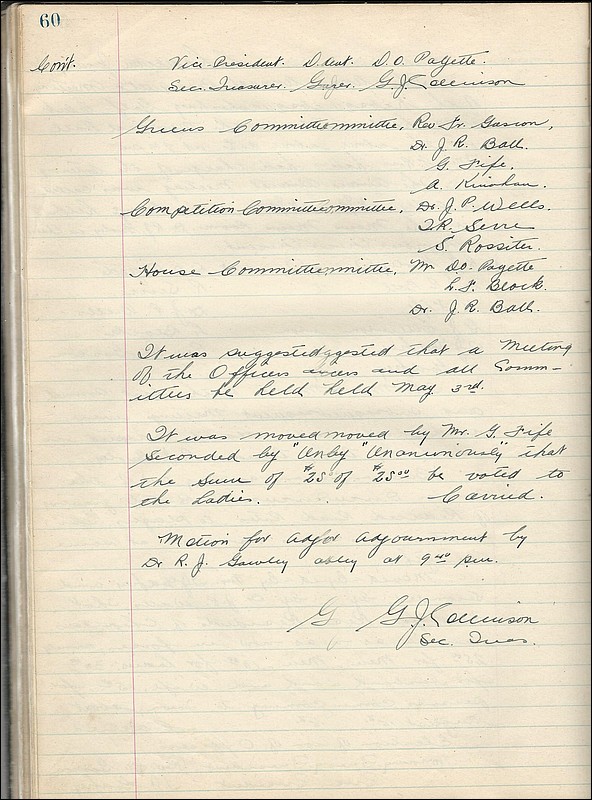 60
Con't. Vice President. D.dent. D.O. Payette.
Sec. Treasurer. G.J.
Greens Committeemmittee, Rev Fr. Gascon,
Dr. J. R. Ball.
G. Fife.
A. Kinohan.
Competition Committeeommittee, Dr. J. P. Wells.
J.R. Serre
S. Rossiter.
House Committeemmittee, Mr D.O. Payette
L. F. Block.
Dr. J. R. Ball.
It was suggestedggested that a Meeting
of the Officers and all Comm-
ittees be held held May 3rd.
It was movedmoved by Mr. G. Fife
seconded by "Unby "Unanimously" that
the Sum of $25 of $25 00 be voted to
the Ladies. Carried.
Motion for adjfor adjournment by
Dr R. J. Gawley at 9 40 pm.
G G.J.
Sec. Treas.